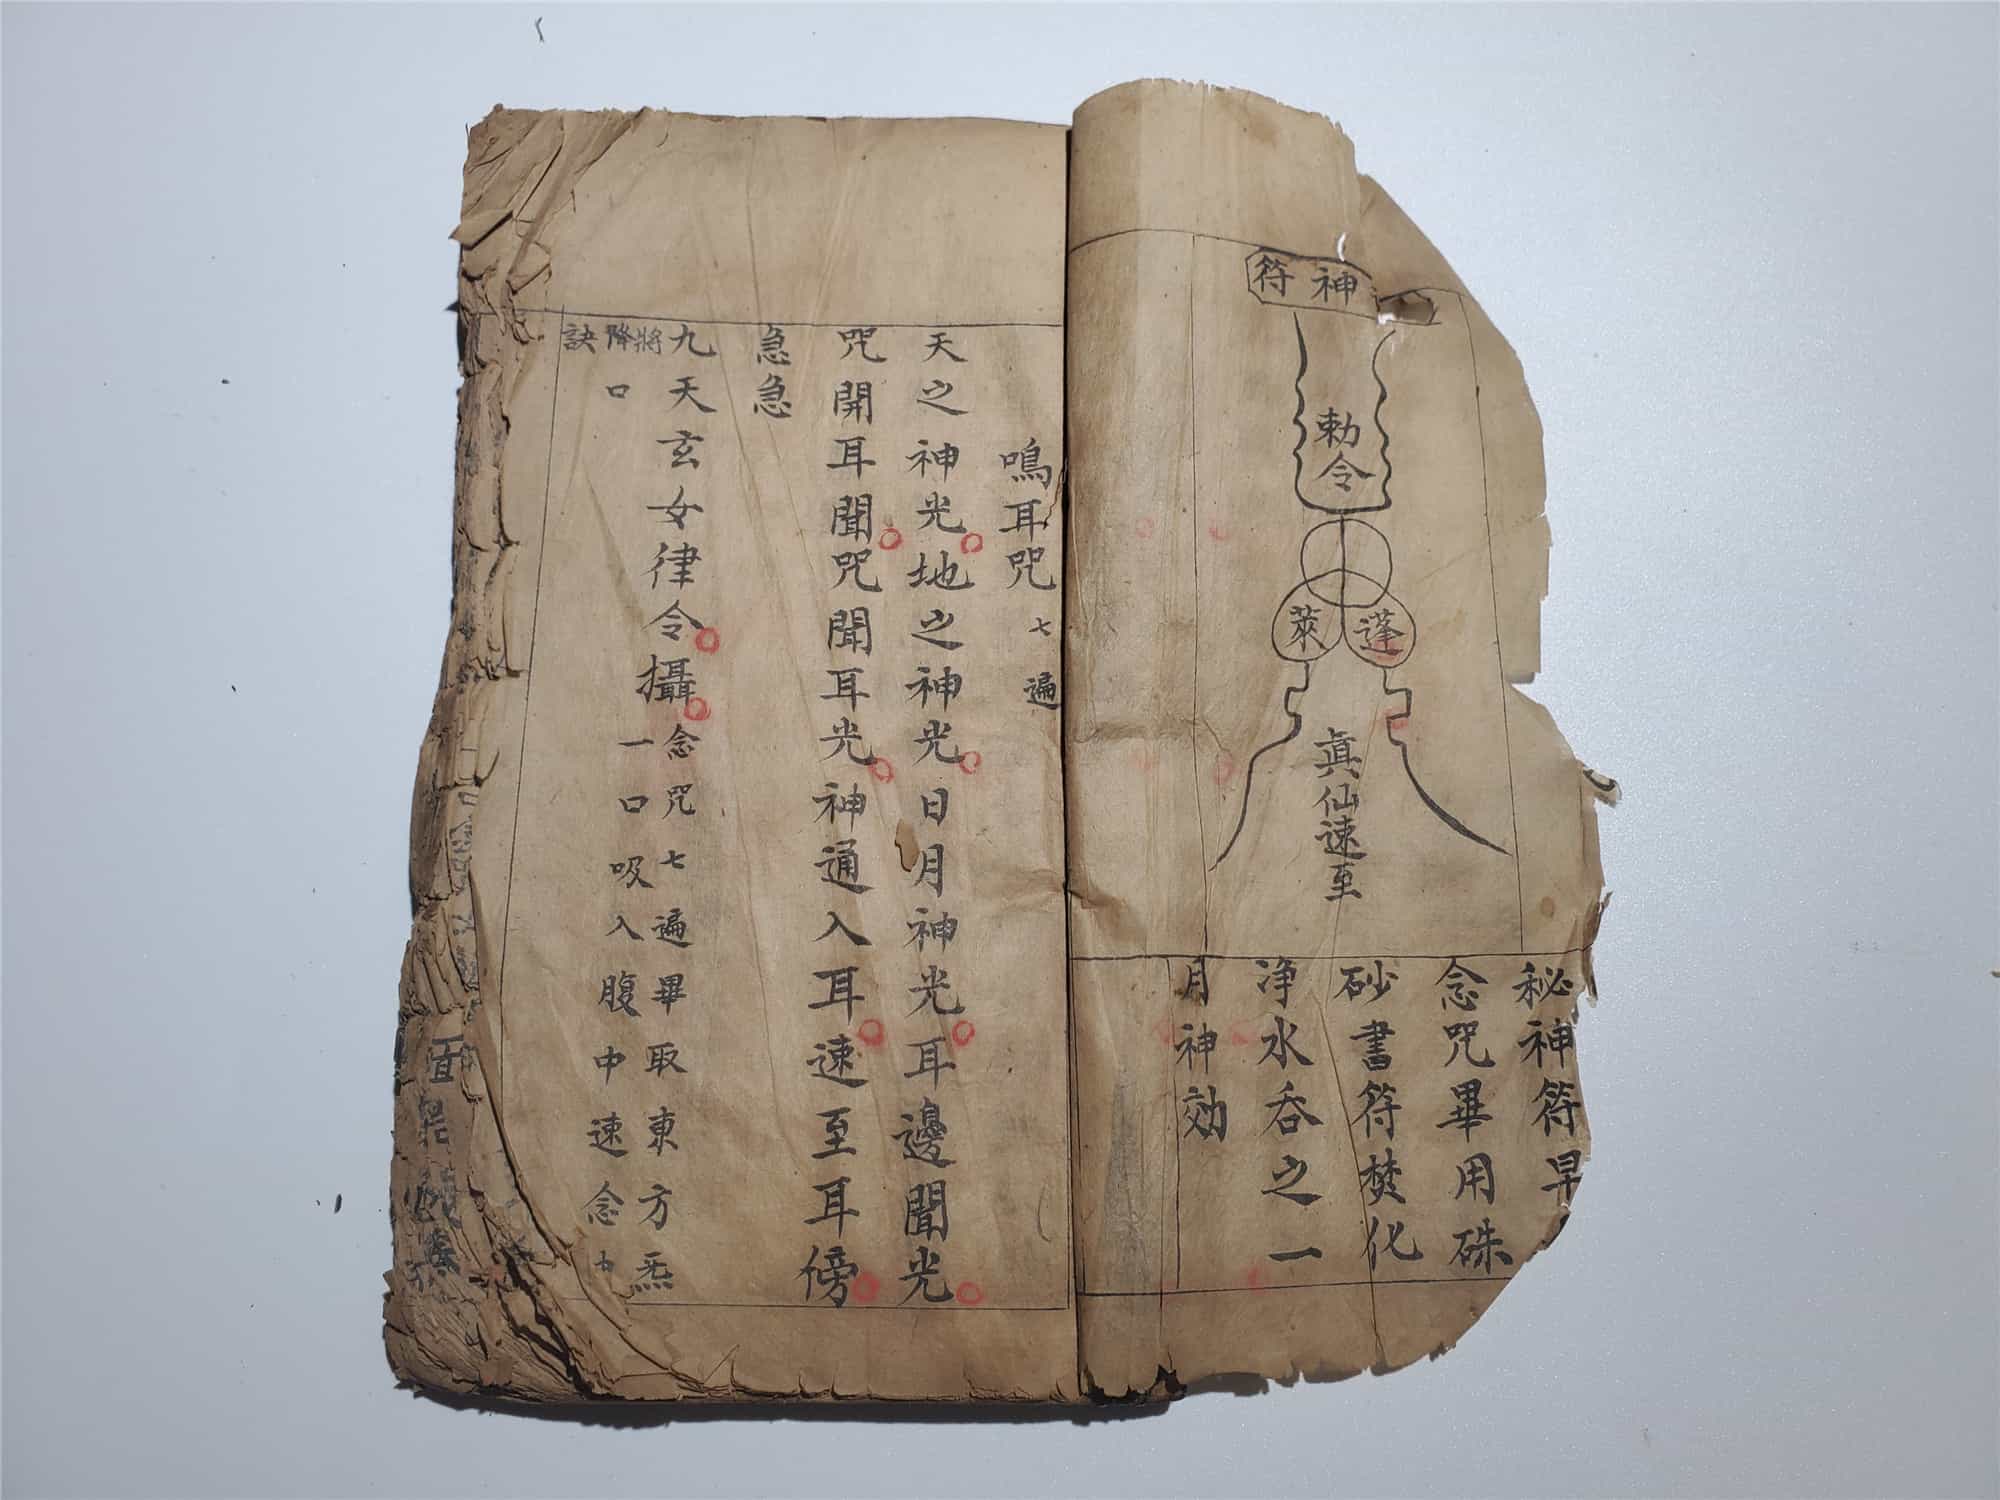 神符
勅令
蓬萊
眞仙速至
秘神符早
念咒畢用硃
砂書符焚化
净水吞之一
月神効
鳴耳咒 七遍
天之神光地之神光日月神光耳邊聞光
咒開耳聞咒聞耳光神通入耳速至耳傍
急急
九天玄女律令攝念咒七遍畢取東方炁
一口吸入腹中速念
將降口
訣